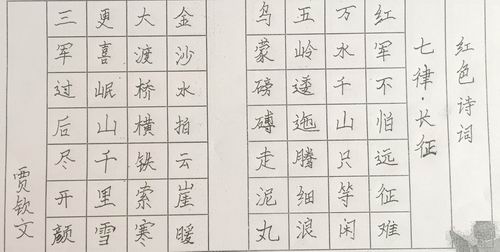 红色诗词
七律·长征
红军不怕远征难
万水千山只等闲
五岭逶迤腾细浪
乌蒙磅礴走泥丸
金沙水拍云崖暖
大渡桥横铁索寒
更喜岷山千里雪
三军过后尽开颜
贾钦文